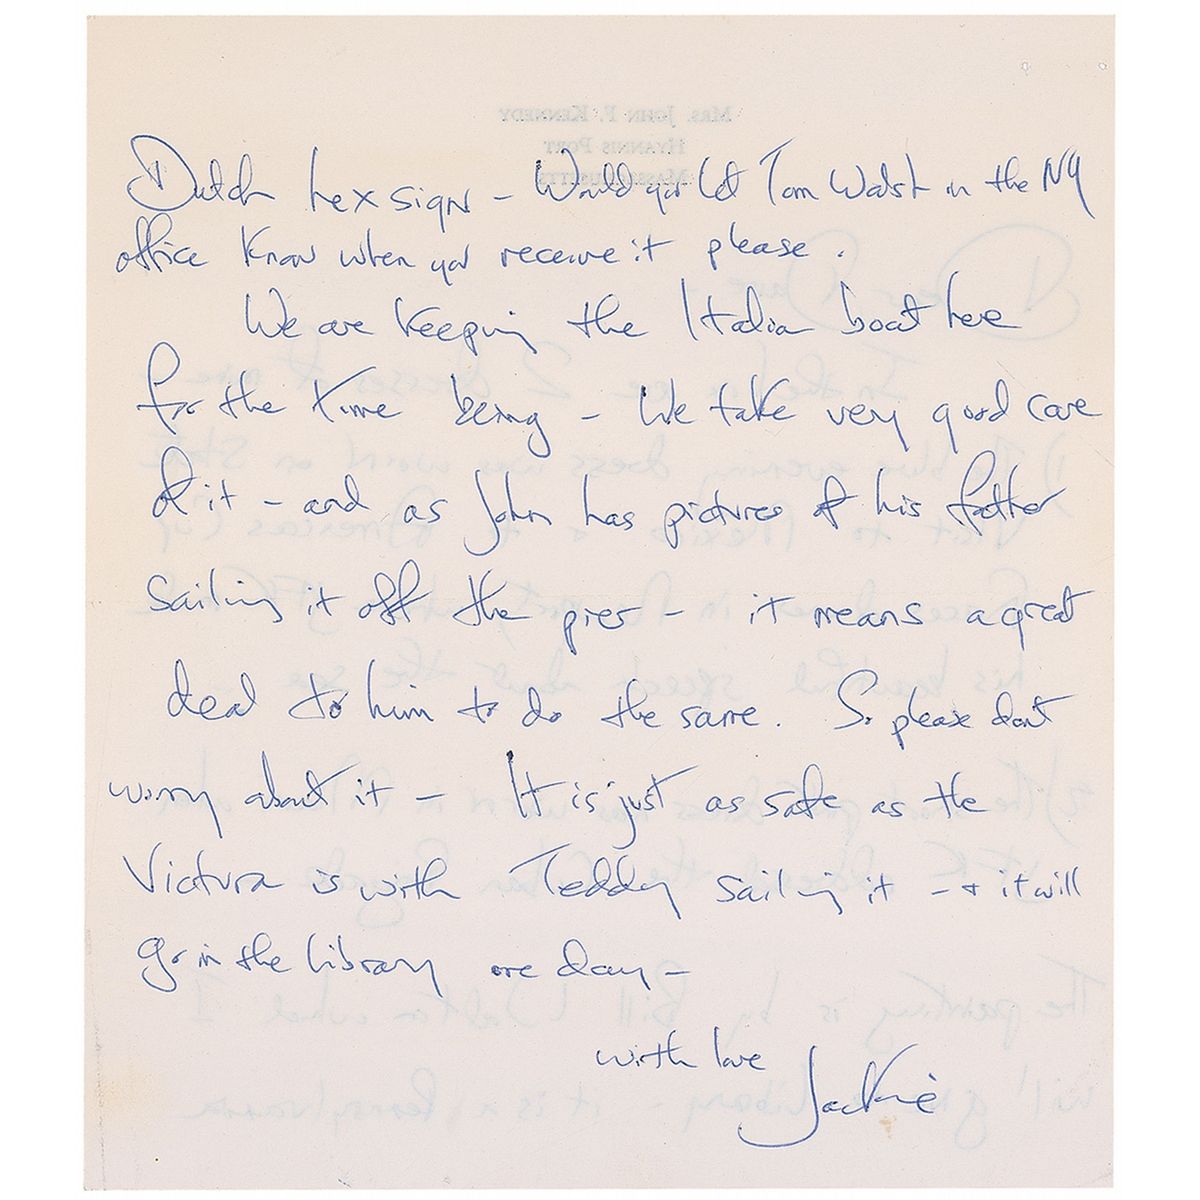 Mrs. John F. Kennedy
Hyannis Port
Massachusetts
Dutch hex sign - Would you let Tom Walsh in the NY
office know when you receive it please.
We are keeping the Italian boat here
for the time being - We take very good care
of it - and as John has pictures of his father
sailing it off the pier - it means a great
deal to him to do the same. So please don't
worry about it - It is just as safe as the
Victura is with Teddy sailing it - + it will
go in the library one day -
with love
Jackie